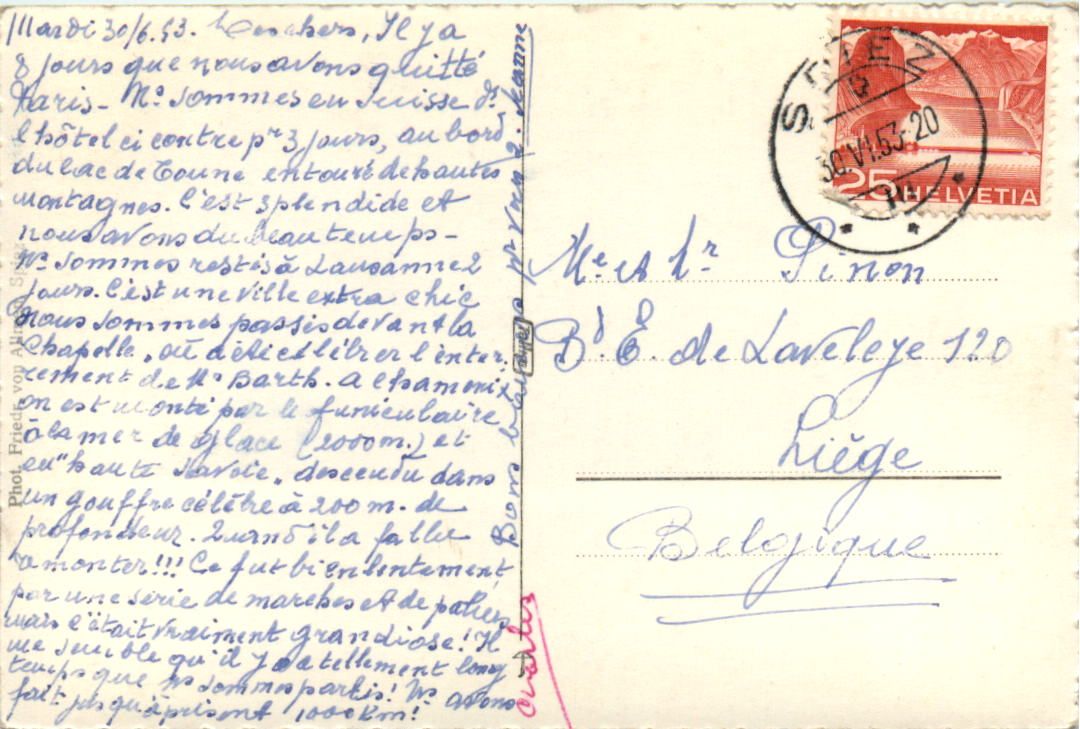 Mardi 30/6.53. Les chers, Il y a
8 jours que nous avons quitté
Paris - Ns sommes en Suisse ds
l'hôtel ci contre pr 3 jours, au bord
du lac de Toune entouré de hautes
montagnes. C'est splendide et
nous avons du beau temps -
Ns sommes restés à Lausanne 2
jours. C'est une ville extra chic
Nous sommes passés devant la
Chapelle, où a été célébrer l'enter-
rement de Mr Barth. A Chamonix
on est monté par le funiculaire
à la mer de glace (2000m.) et
en "haute Savoie" descendu dans
un gouffre célèbre à 200 m. de
profondeur. Quand il a fallu
remonter!!! Ce fut bien lentement,
par une série de marches et de paliers
mais c'était vraiment grandiose! Il
me semble qu'il y a tellement long
temps que ns sommes partis! Ns avons
fait jusqu'à présent 1000 km!
Bons baisers pr vous 2. Jeanne
Phot. Friedr. von
SPIEZ
30.VI.53-20
25 HELVETIA
Me et Mr Pinon
Bd. E. de Laveleye 120
Liège
Belgique